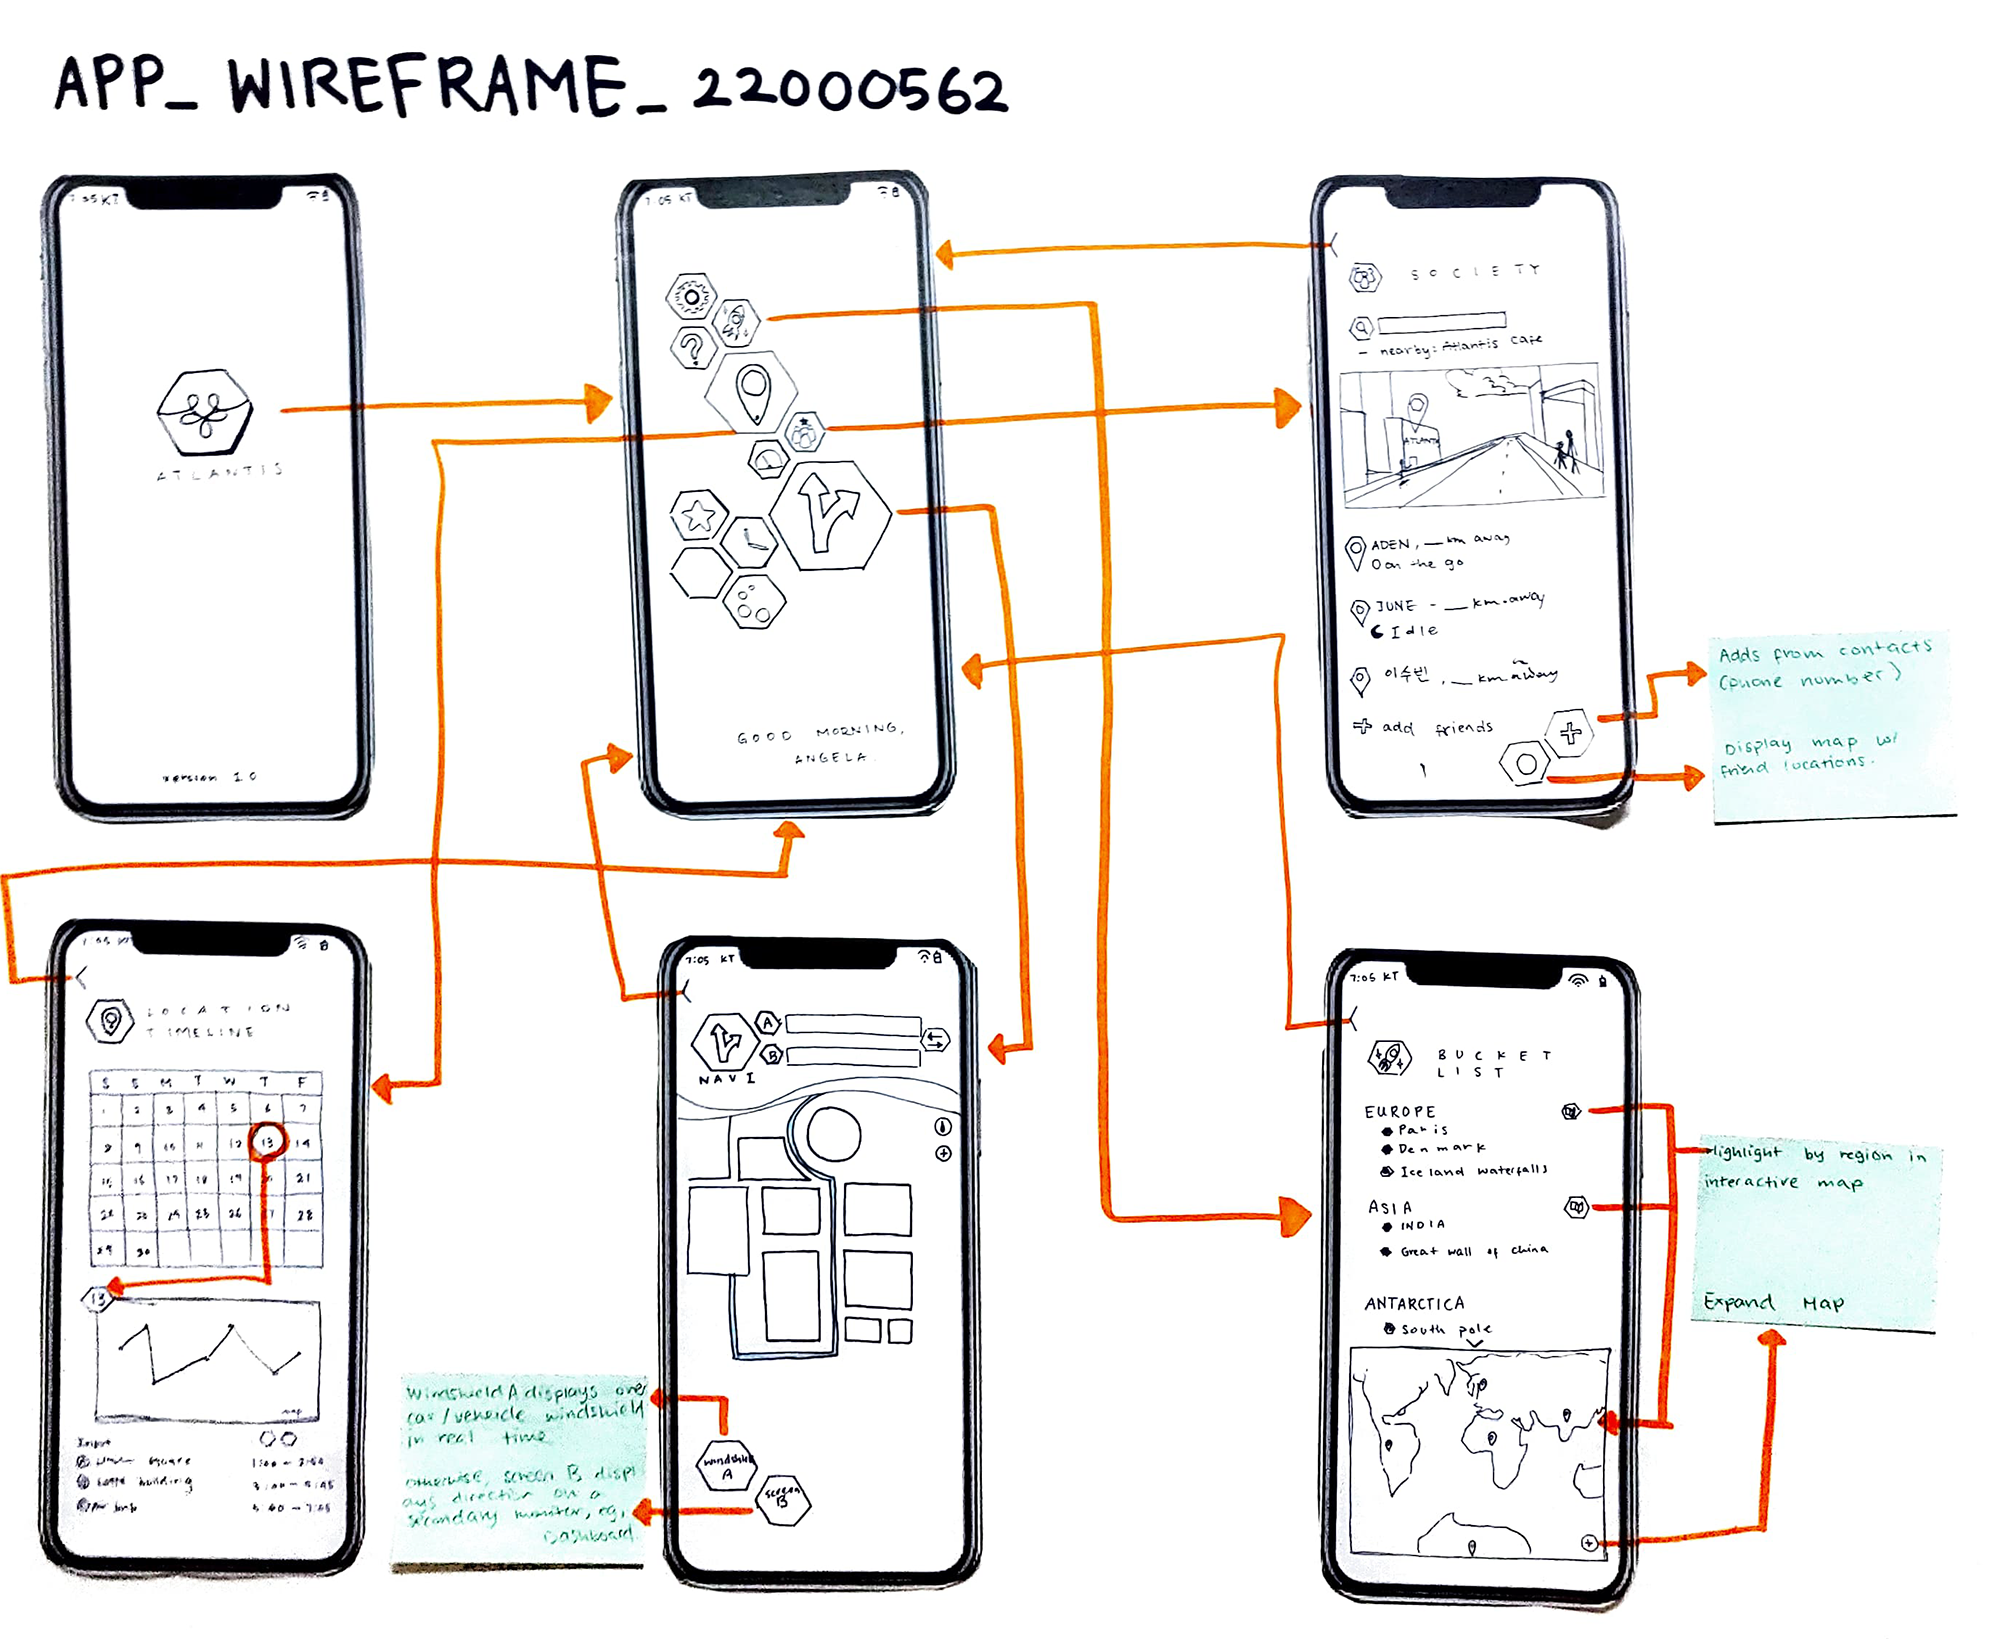 APP_ WIREFRAME_ 22000562
7:05 KT
ATLANTIS
version 1.0
7:05 KT
GOOD MORNING,
ANGELA.
SOCIETY
- nearby: Atlantis Cafe
ATLANTIS
ADEN, __ km away
O on the go
JUNE - __ km away
Idle
이수빈, __ km away
+ add friends
Adds from contacts
(phone number)
Display map w/
friend locations.
7:05 KT
LOCATION
TIMELINE
S S M T W T F
1 2 3 4 5 6 7
8 9 10 11 12 13 14
15 16 17 18 19 20 21
28
29 30
13
map
Input
square
building
7:05 KT
A
B
NAVI
windshield
A
screen
B
Windshield A displays over
car/vehicle windshield
in real time
otherwise, screen B displ
ays direction on a
secondary monitor, eg,
Dashboard.
7:05 KT
BUCKET
LIST
EUROPE
Paris
Denmark
Iceland waterfalls
ASIA
INDIA
Great wall of china
ANTARCTICA
South pole
Highlight by region in
interactive map
Expand Map